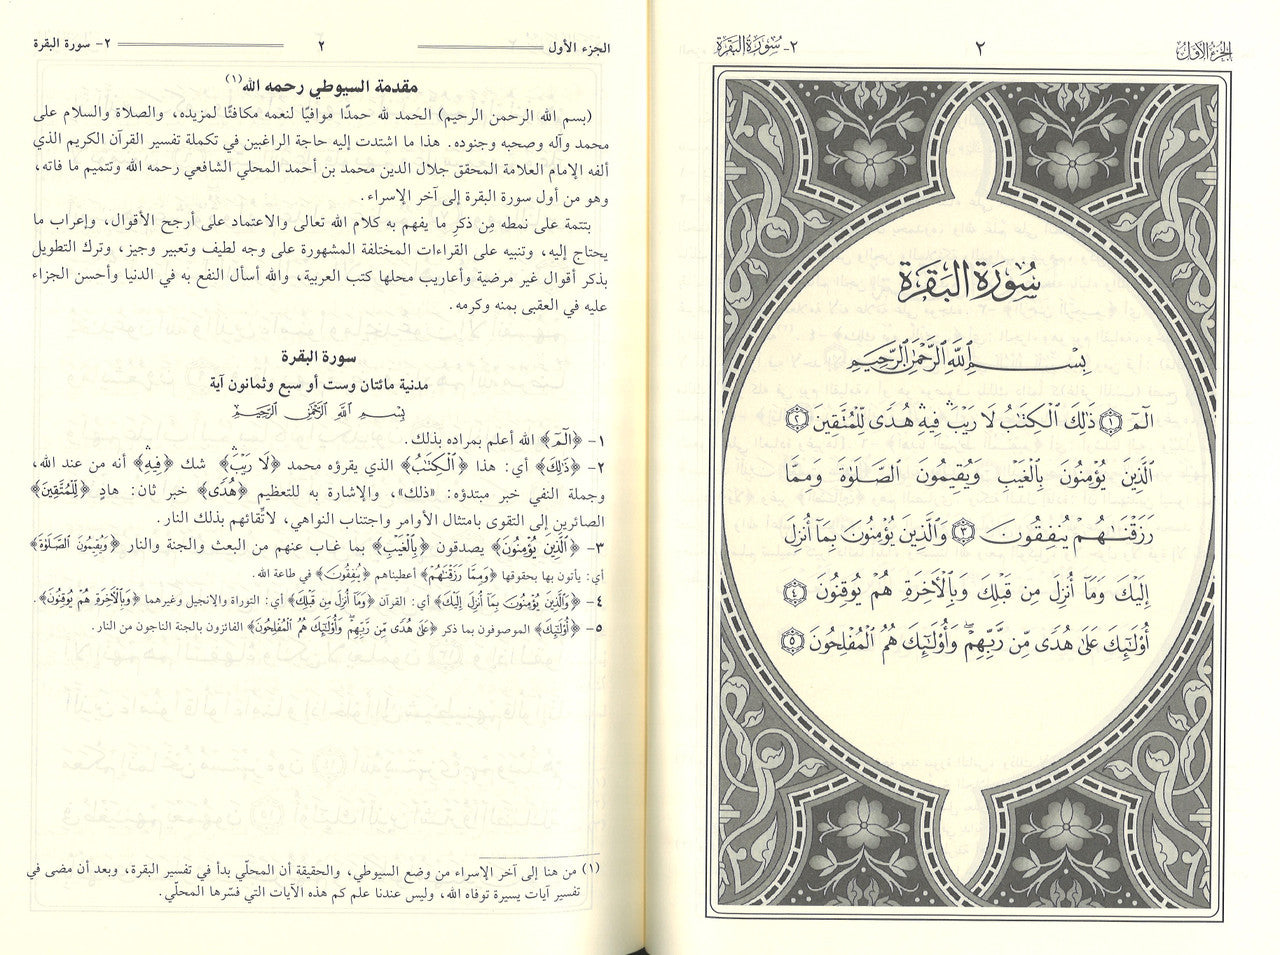 الجزء الأول
٢
٢- سورة البقرة
سورة البقرة
بِسْمِ اللَّهِ الرَّحْمَٰنِ الرَّحِيمِ
الٓمٓ ﴿١﴾ ذَٰلِكَ ٱلْكِتَٰبُ لَا رَيْبَۛ فِيهِۛ هُدًى لِّلْمُتَّقِينَ ﴿٢﴾
ٱلَّذِينَ يُؤْمِنُونَ بِٱلْغَيْبِ وَيُقِيمُونَ ٱلصَّلَوٰةَ وَمِمَّا
رَزَقْنَٰهُمْ يُنفِقُونَ ﴿٣﴾ وَٱلَّذِينَ يُؤْمِنُونَ بِمَآ أُنزِلَ
إِلَيْكَ وَمَآ أُنزِلَ مِن قَبْلِكَ وَبِٱلْءَاخِرَةِ هُمْ يُوقِنُونَ ﴿٤﴾
أُو۟لَٰٓئِكَ عَلَىٰ هُدًى مِّن رَّبِّهِمْۖ وَأُو۟لَٰٓئِكَ هُمُ ٱلْمُفْلِحُونَ ﴿٥﴾
الجزء الأول
٢
٢- سورة البقرة
مقدمة السيوطي رحمه الله(١)
(بسم الله الرحمن الرحيم) الحمد لله حمدًا موافيًا لنعمه مكافئًا لمزيده، والصلاة والسلام على
محمد وآله وصحبه وجنوده. هذا ما اشتدت إليه حاجة الراغبين في تكملة تفسير القرآن الكريم الذي
ألفه الإمام العلامة المحقق جلال الدين محمد بن أحمد المحلي الشافعي رحمه الله وتتميم ما فاته،
وهو من أول سورة البقرة إلى آخر الإسراء.
بتتمة على نمطه مِن ذكرِ ما يفهم به كلام الله تعالى والاعتماد على أرجح الأقوال، وإعراب ما
يحتاج إليه، وتنبيه على القراءات المختلفة المشهورة على وجه لطيف وتعبير وجيز، وترك التطويل
بذكر أقوال غير مرضية وأعاريب محلها كتب العربية، والله أسأل النفع به في الدنيا وأحسن الجزاء
عليه في العقبى بمنه وكرمه.
سورة البقرة
مدنية مائتان وست أو سبع وثمانون آية
بِسْمِ اللَّهِ الرَّحْمَٰنِ الرَّحِيمِ
١- ﴿الٓمٓ﴾ الله أعلم بمراده بذلك.
٢- ﴿ذَٰلِكَ﴾ أي: هذا ﴿ٱلْكِتَٰبُ﴾ الذي يقرؤه محمد ﴿لَا رَيْبَۛ﴾ شك ﴿فِيهِۛ﴾ أنه من عند الله،
وجملة النفي خبر مبتدؤه: «ذلك»، والإشارة به للتعظيم ﴿هُدًى﴾ خبر ثان: هادٍ ﴿لِّلْمُتَّقِينَ﴾
الصائرين إلى التقوى بامتثال الأوامر واجتناب النواهي، لاتّقائهم بذلك النار.
٣- ﴿ٱلَّذِينَ يُؤْمِنُونَ﴾ يصدقون ﴿بِٱلْغَيْبِ﴾ بما غاب عنهم من البعث والجنة والنار ﴿وَيُقِيمُونَ ٱلصَّلَوٰةَ﴾
أي: يأتون بها بحقوقها ﴿وَمِمَّا رَزَقْنَٰهُمْ﴾ أعطيناهم ﴿يُنفِقُونَ﴾ في طاعة الله.
٤- ﴿وَٱلَّذِينَ يُؤْمِنُونَ بِمَآ أُنزِلَ إِلَيْكَ﴾ أي: القرآن ﴿وَمَآ أُنزِلَ مِن قَبْلِكَ﴾ أي: التوراة والإنجيل وغيرهما ﴿وَبِٱلْءَاخِرَةِ هُمْ يُوقِنُونَ﴾.
٥- ﴿أُو۟لَٰٓئِكَ﴾ الموصوفون بما ذكر ﴿عَلَىٰ هُدًى مِّن رَّبِّهِمْۖ وَأُو۟لَٰٓئِكَ هُمُ ٱلْمُفْلِحُونَ﴾ الفائزون بالجنة الناجون من النار.
(١) من هنا إلى آخر الإسراء من وضع السيوطي، والحقيقة أن المحلّي بدأ في تفسير البقرة، وبعد أن مضى في
تفسير آيات يسيرة توفاه الله، وليس عندنا علم كم هذه الآيات التي فسّرها المحلّي.